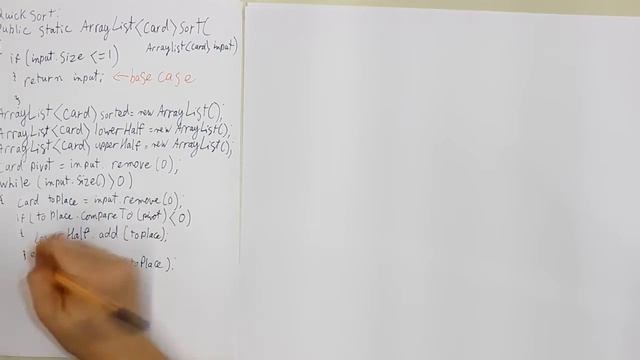 QuickSort:
Public static ArrayList<Card> Sort(
{ ArrayList<Card> input)
if (input.size <=1)
{ return input; ←base case
}
ArrayList<Card> sorted = new ArrayList();
ArrayList<Card> lowerHalf = new ArrayList();
ArrayList<Card> upperHalf = new ArrayList();
Card pivot = input. remove (0);
while (input.size() > 0)
{ Card toPlace = input.remove(0);
if (toPlace.compareTo(pivot) < 0)
{ lowerHalf.add (toPlace);
toPlace);